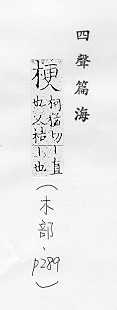 四聲篇海
梗
柯猛切丨直
也又桔丨也
(木部、p289)